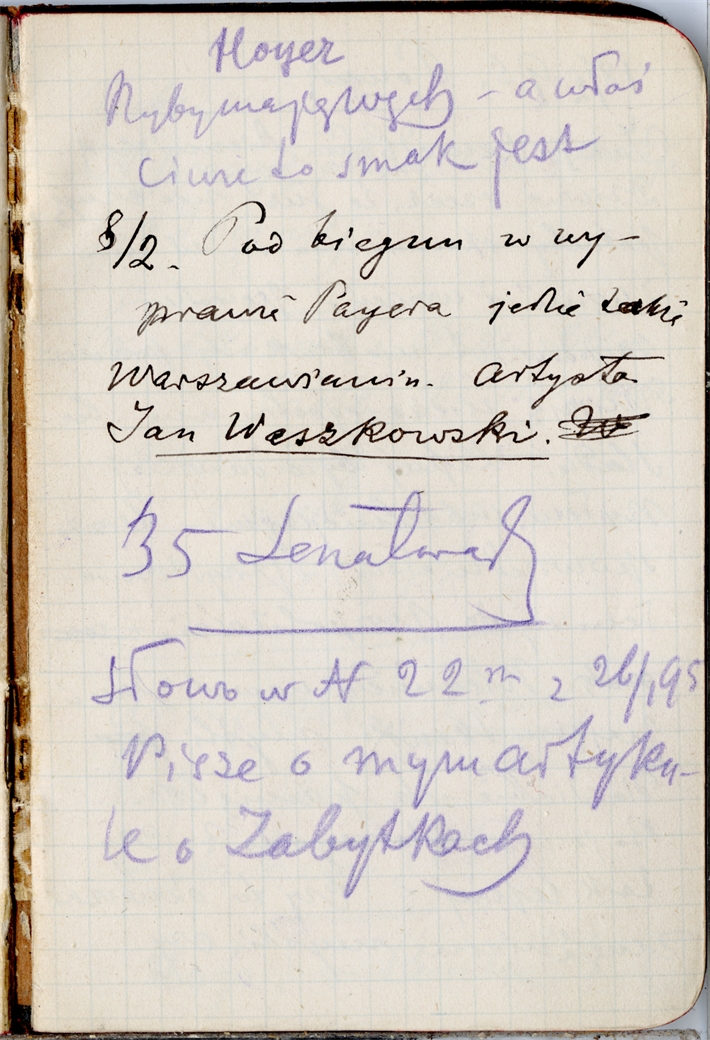 Hoyer
Ryby mają węch – a właś
ciwie to smak jest
8/2. Pod biegun w wy-
prawie Payera jedzie także
Warszawianin. Artysta
Jan Waszkowski.
35 Senatorsk
Słowo w № 22m z 26/1 95
Pisze o mym artyku-
le o Zabytkach